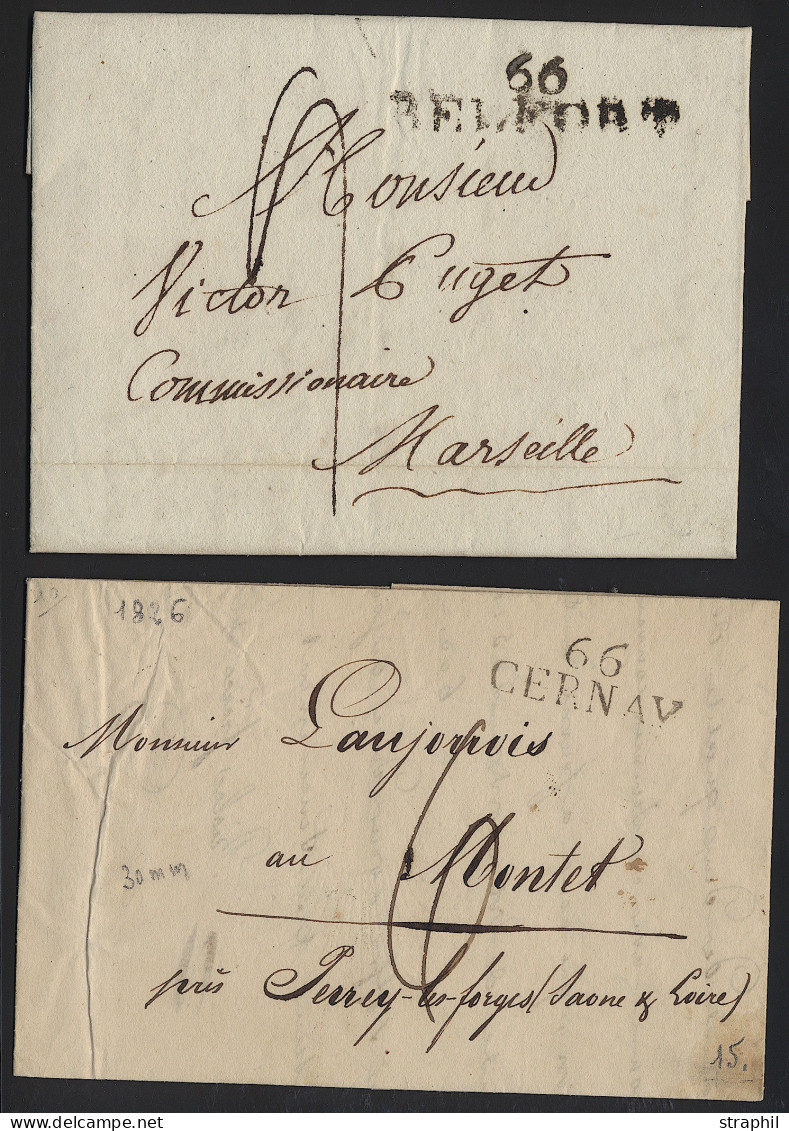 66
BELFORT
Monsieur
Victor Puget
Commissionaire
Marseille
1826
66
CERNAY
Monsieur
au Montet
30 mm
près Perrey-les-forges (Saone & Loire)
15.
© straphil
delcampe.net